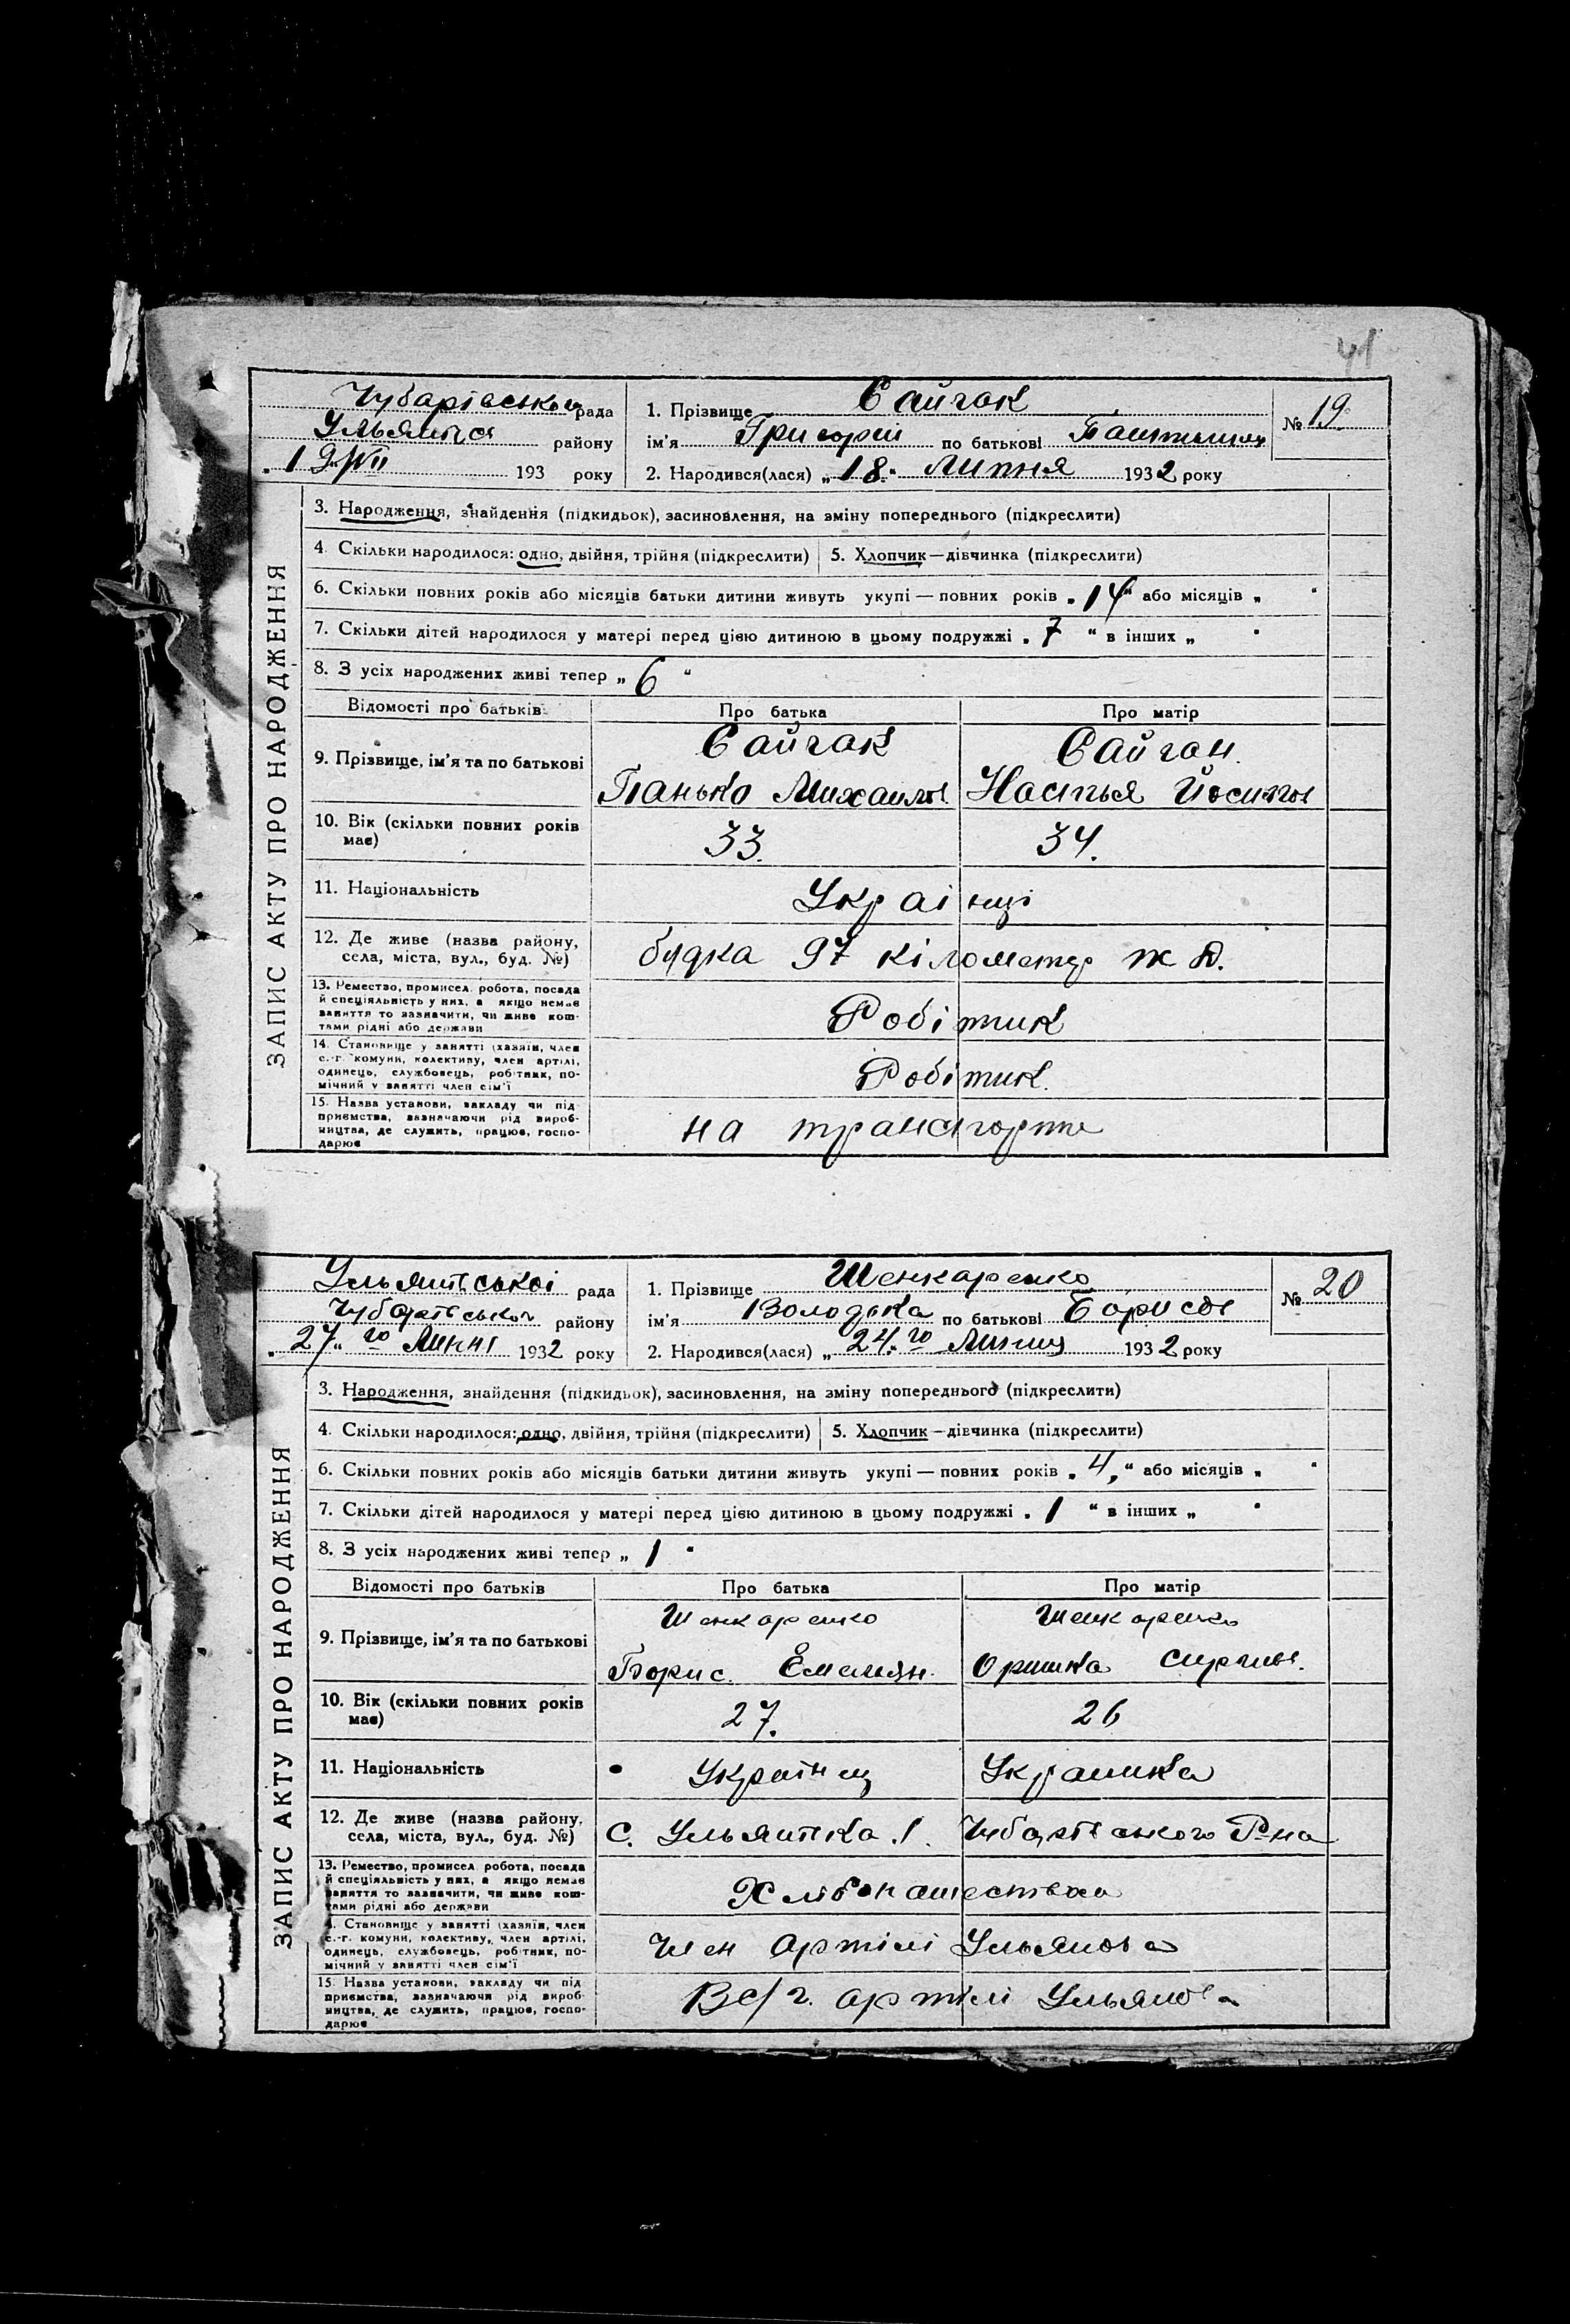 41
Чубарівської рада
Ульянівся району
"19" VII 193 року
1. Прізвище Сайгак
ім'я Григорій по батькові
2. Народився(лася) „18" Липня 1932 року
№ 19
ЗАПИС АКТУ ПРО НАРОДЖЕННЯ
3. Народження, знайдення (підкидьок), засиновлення, на зміну попереднього (підкреслити)
4. Скільки народилося: одно, двійня, трійня (підкреслити) 5. Хлопчик—дівчинка (підкреслити)
6. Скільки повних років або місяців батьки дитини живуть укупі — повних років „14" або місяців „ "
7. Скільки дітей народилося у матері перед цією дитиною в цьому подружжі „7" в інших „ "
8. З усіх народжених живі тепер „6"
Відомості про батьків Про батька Про матір
9. Прізвище, ім'я та по батькові
Сайгак Сайгак
Панько Михайлов. Настья Йосипов
10. Вік (скільки повних років має) 33. 34.
11. Національність Українці
12. Де живе (назва району, села, міста, вул., буд. №) будка 97 кілометр ж д.
13. Ремество, промисел, робота, посада й спеціяльність у них, а якщо немає заняття то зазначити, чи живе коштами рідні або держави Робітник
14. Становище у занятті (хазяїн, член с.-г. комуни, колективу, член артілі, одинець, службовець, робітник, помічний у занятті член сім'ї Робітник.
15. Назва установи, закладу чи підприємства, зазначаючи рід виробництва, де служить, працює, господарює на транспорте
Ульянівської рада
Чубарівського району
„27" го Липня 1932 року
1. Прізвище Шенкаренко
ім'я Володька по батькові Борисов
2. Народився(лася) „24" го Липня 1932 року
№ 20
ЗАПИС АКТУ ПРО НАРОДЖЕННЯ
3. Народження, знайдення (підкидьок), засиновлення, на зміну попереднього (підкреслити)
4. Скільки народилося: одно, двійня, трійня (підкреслити) 5. Хлопчик—дівчинка (підкреслити)
6. Скільки повних років або місяців батьки дитини живуть укупі — повних років „4" або місяців „ "
7. Скільки дітей народилося у матері перед цією дитиною в цьому подружжі „1" в інших „ "
8. З усіх народжених живі тепер „1"
Відомості про батьків Про батька Про матір
9. Прізвище, ім'я та по батькові
Шенкаренко Шенкаренко
Борис Емельян. Оришка Сиргіев.
10. Вік (скільки повних років має) 27. 26
11. Національність Українец Украинка
12. Де живе (назва району, села, міста, вул., буд. №) С. Ульянівка 1. Чубарівського Р-на
13. Ремество, промисел, робота, посада й спеціяльність у них, а якщо немає заняття то зазначити, чи живе коштами рідні або держави Хлібопашества
14. Становище у занятті (хазяїн, член с.-г. комуни, колективу, член артілі, одинець, службовець, робітник, помічний у занятті член сім'ї Член Артілі Ульянова
15. Назва установи, закладу чи підприємства, зазначаючи рід виробництва, де служить, працює, господарює В с/г. артілі Ульянова